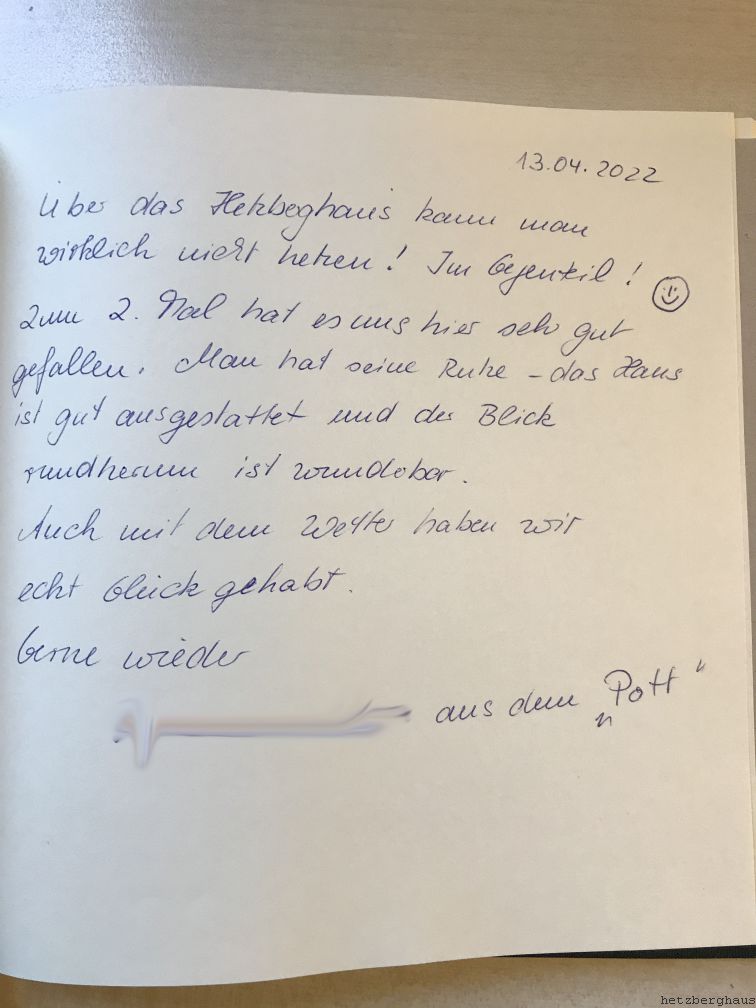 13.04.2022
Über das Hetzbeghaus kann man
wirklich nicht hetzen! Im Gegenteil!
Zum 2. Mal hat es uns hier sehr gut
gefallen. Man hat seine Ruhe – das Haus
ist gut ausgestattet und der Blick
rundherum ist wunderbar.
Auch mit dem Wetter haben wir
echt Glück gehabt.
Gerne wieder
aus dem „Pott"
hetzberghaus